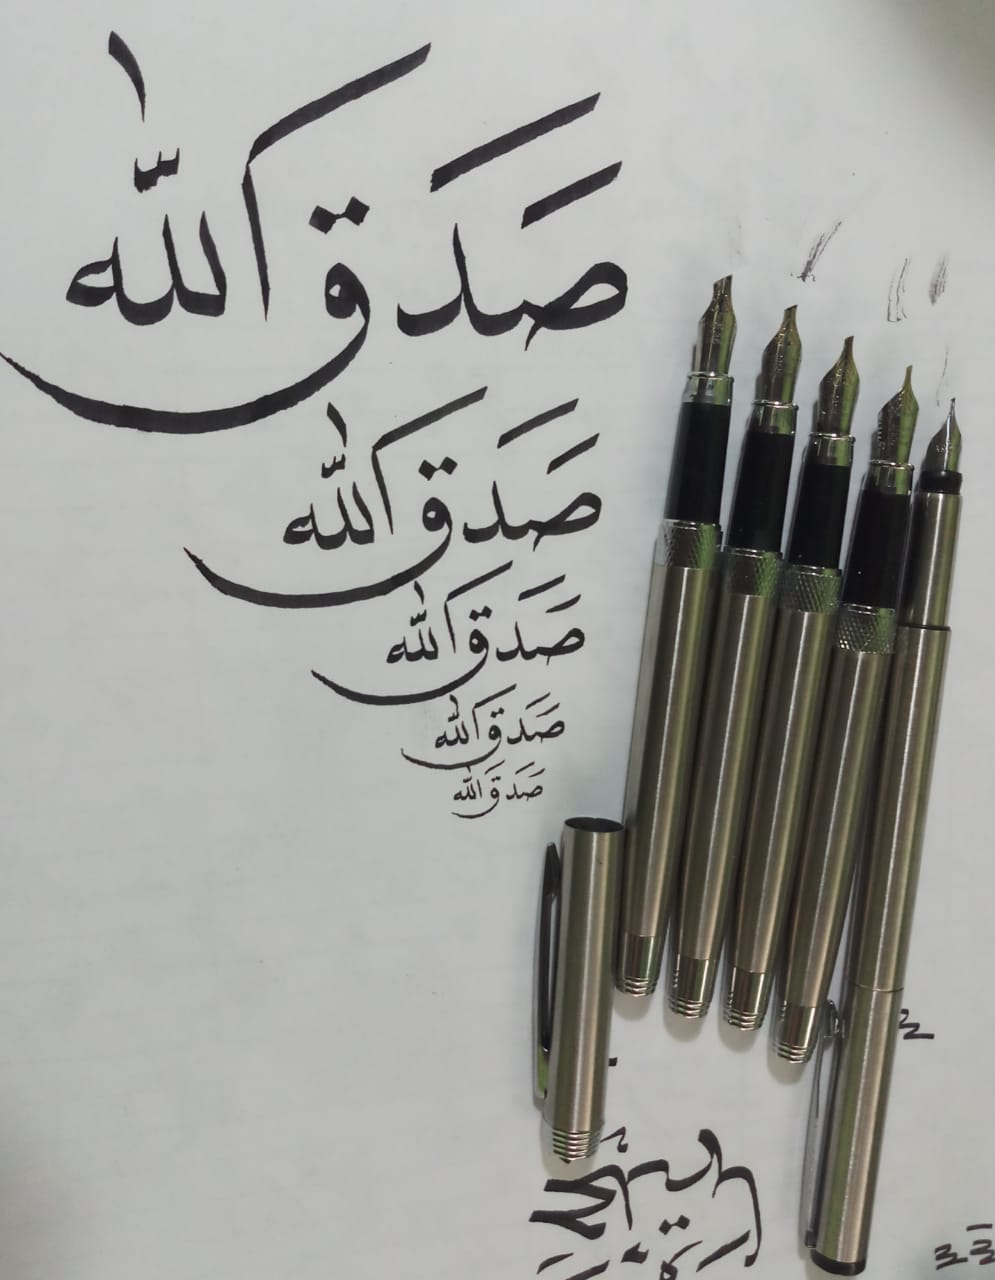 صَدَقَ اللّٰه
صَدَقَ اللّٰه
صَدَقَ اللّٰه
صَدَقَ اللّٰه
صَدَقَ اللّٰه